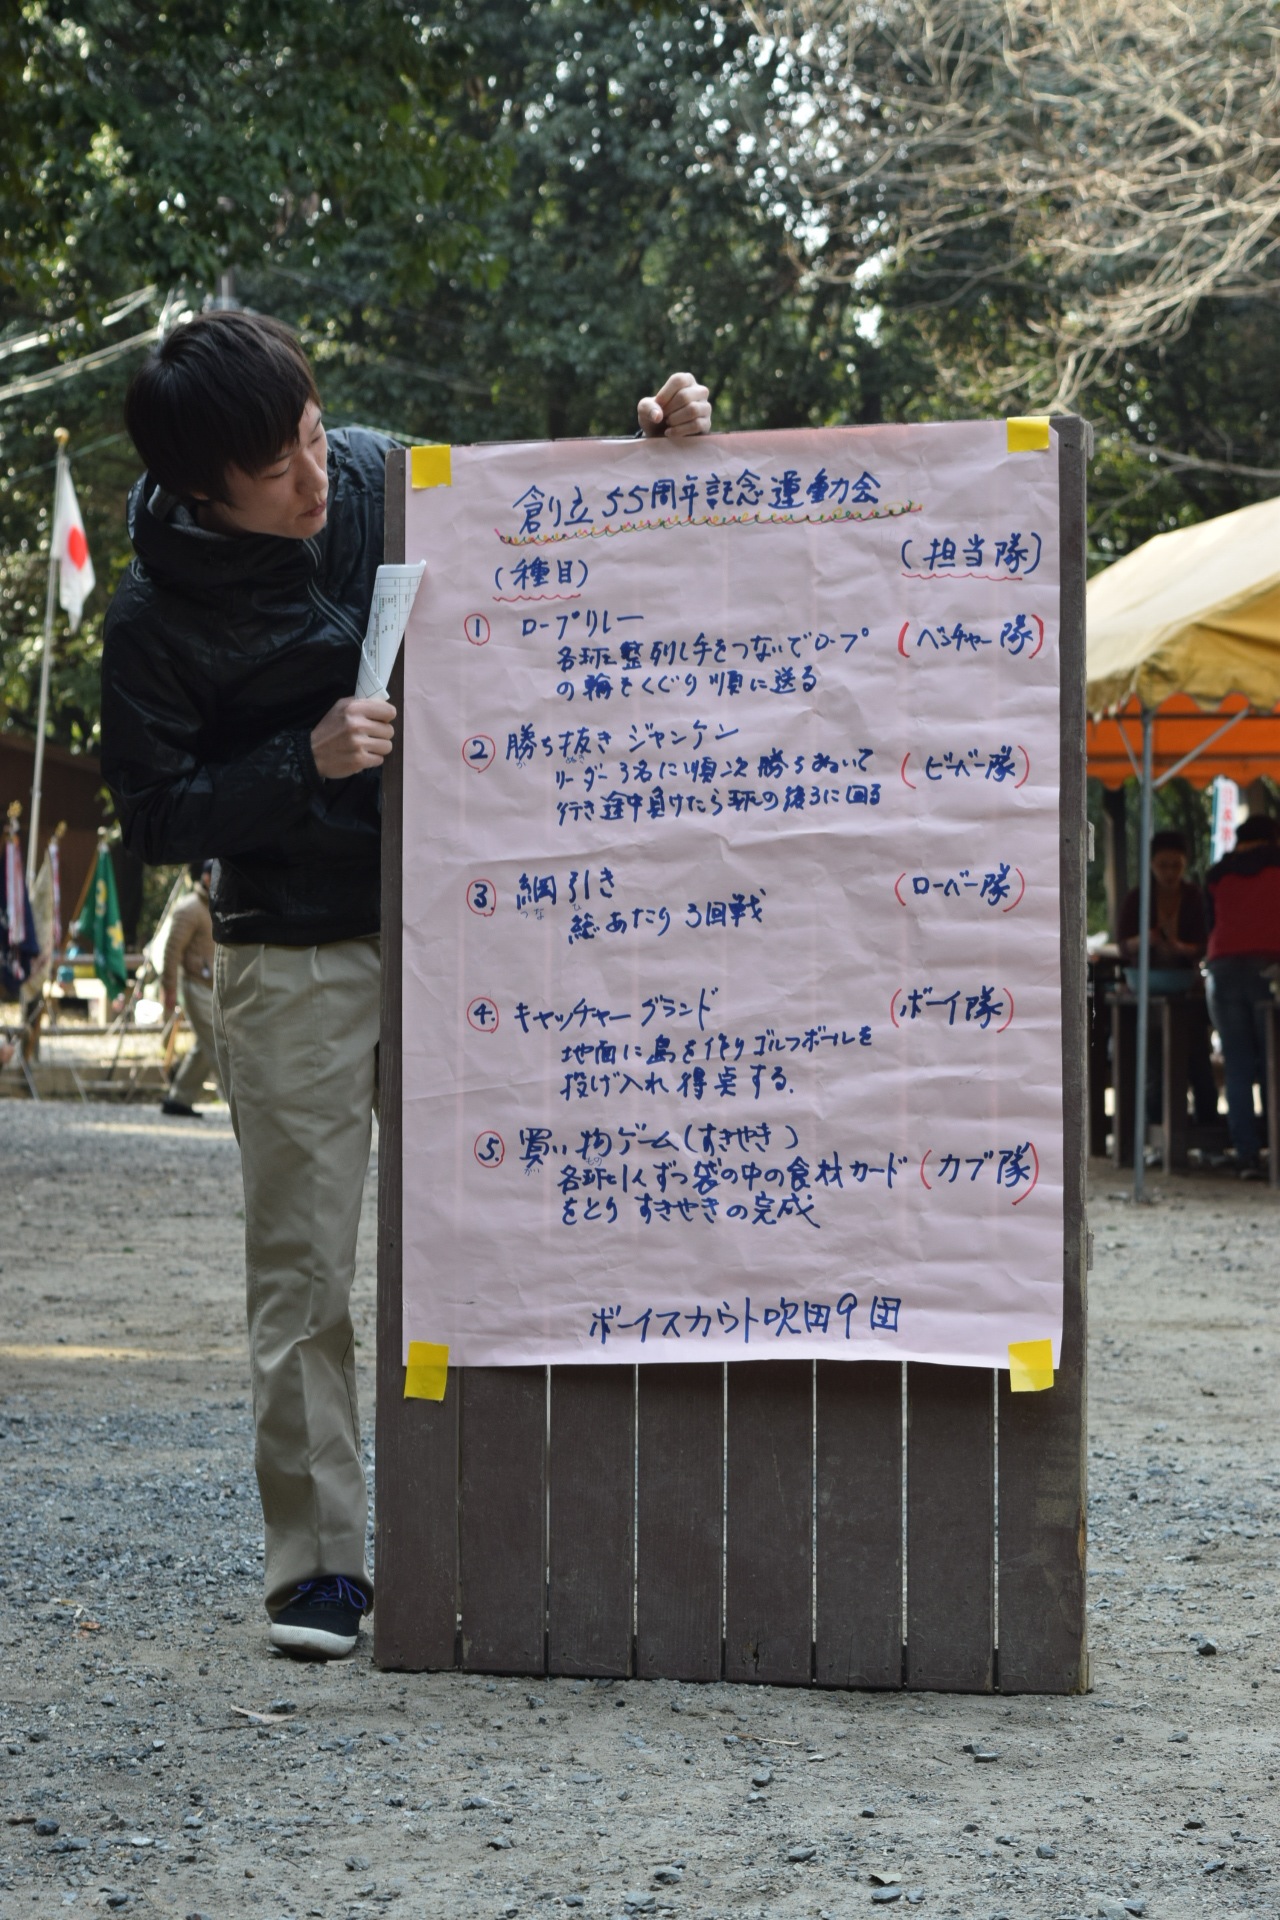 創立55周年記念運動会
(種目)
(担当隊)
① ロープリレー
(ベンチャー隊)
各班整列し手をつないでロープ
の輪をくぐり順に送る
② 勝ち抜きジャンケン
か ぬき
(ビーバー隊)
リーダー3名に順次勝ちぬいて
行き途中負けたら班の後ろに回る
③ 綱引き
つな ひ
(ローバー隊)
総あたり3回戦
④ キャッチャーグランド
(ボーイ隊)
地面に島を作りゴルフボールを
投げ入れ得点する.
⑤ 買い物ゲーム(すきやき)
かい もの
各班1人ずつ袋の中の食材カード
(カブ隊)
をとりすきやきの完成
ボーイスカウト吹田9団